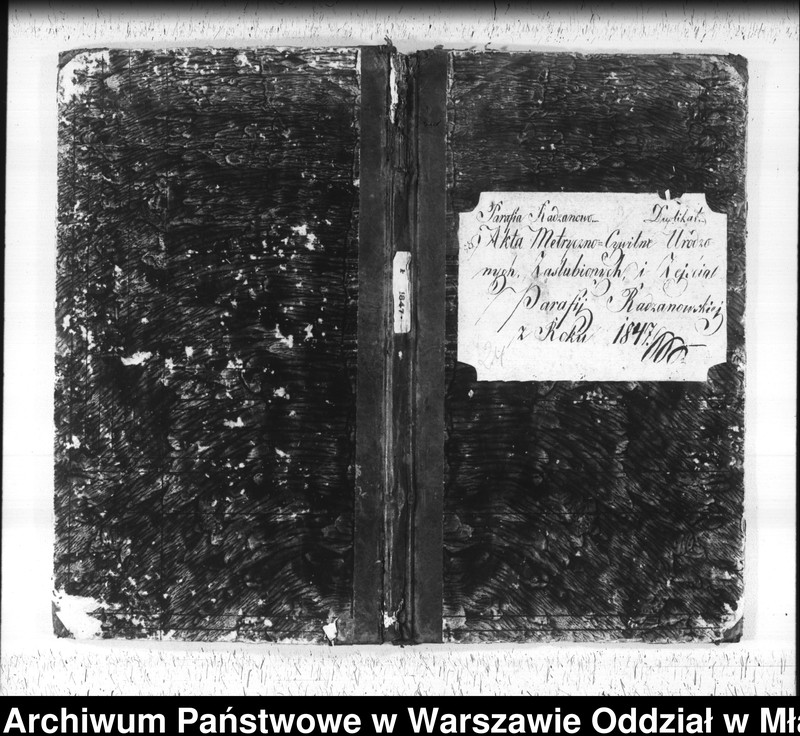 Parafia Radzanowo Duplikat
Akta Metryczno=Cywilne Urodzo
nych, Zaślubionych, i Zejściał
Parafij Radzanowskiej
z Roku 1847
1847
24
Archiwum Państwowe w Warszawie Oddział w Mła